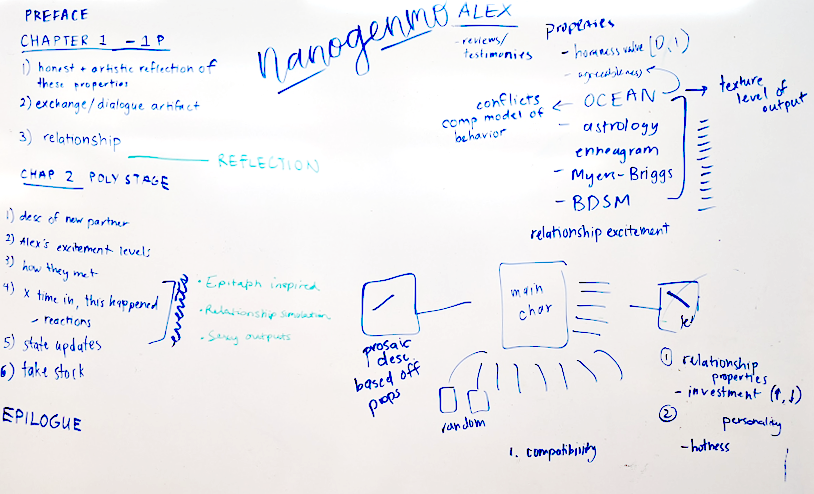 PREFACE
CHAPTER 1 - 1 P
1) honest + artistic reflection of
these properties
2) exchange/dialogue artifact
3) relationship
REFLECTION
CHAP 2 POLY STAGE
1) desc of new partner
2) Alex's excitement levels
3) how they met
4) X time in, this happened
- reactions
5) state updates
6) take stock
events
• Epitaph inspired
• Relationship simulation
• Sexy outputs
EPILOGUE
nanogenmo
ALEX
- reviews/
testimonies
properties
- hotness value (0, 1)
- agreeableness
- OCEAN
conflicts
comp model of
behavior
- astrology
enneagram
- Myers-Briggs
- BDSM
texture
level of
output
relationship excitement
main
char
prosaic
desc.
based off
props
random
1. compatibility
1 relationship
properties
- investment (↑, ↓)
2 personality
- hotness